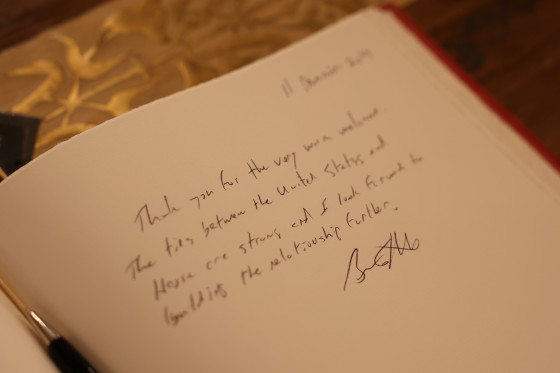 11 December
Thank you for the very warm welcome.
The ties between the United States and
are strong and I look forward to
building the relationship further.